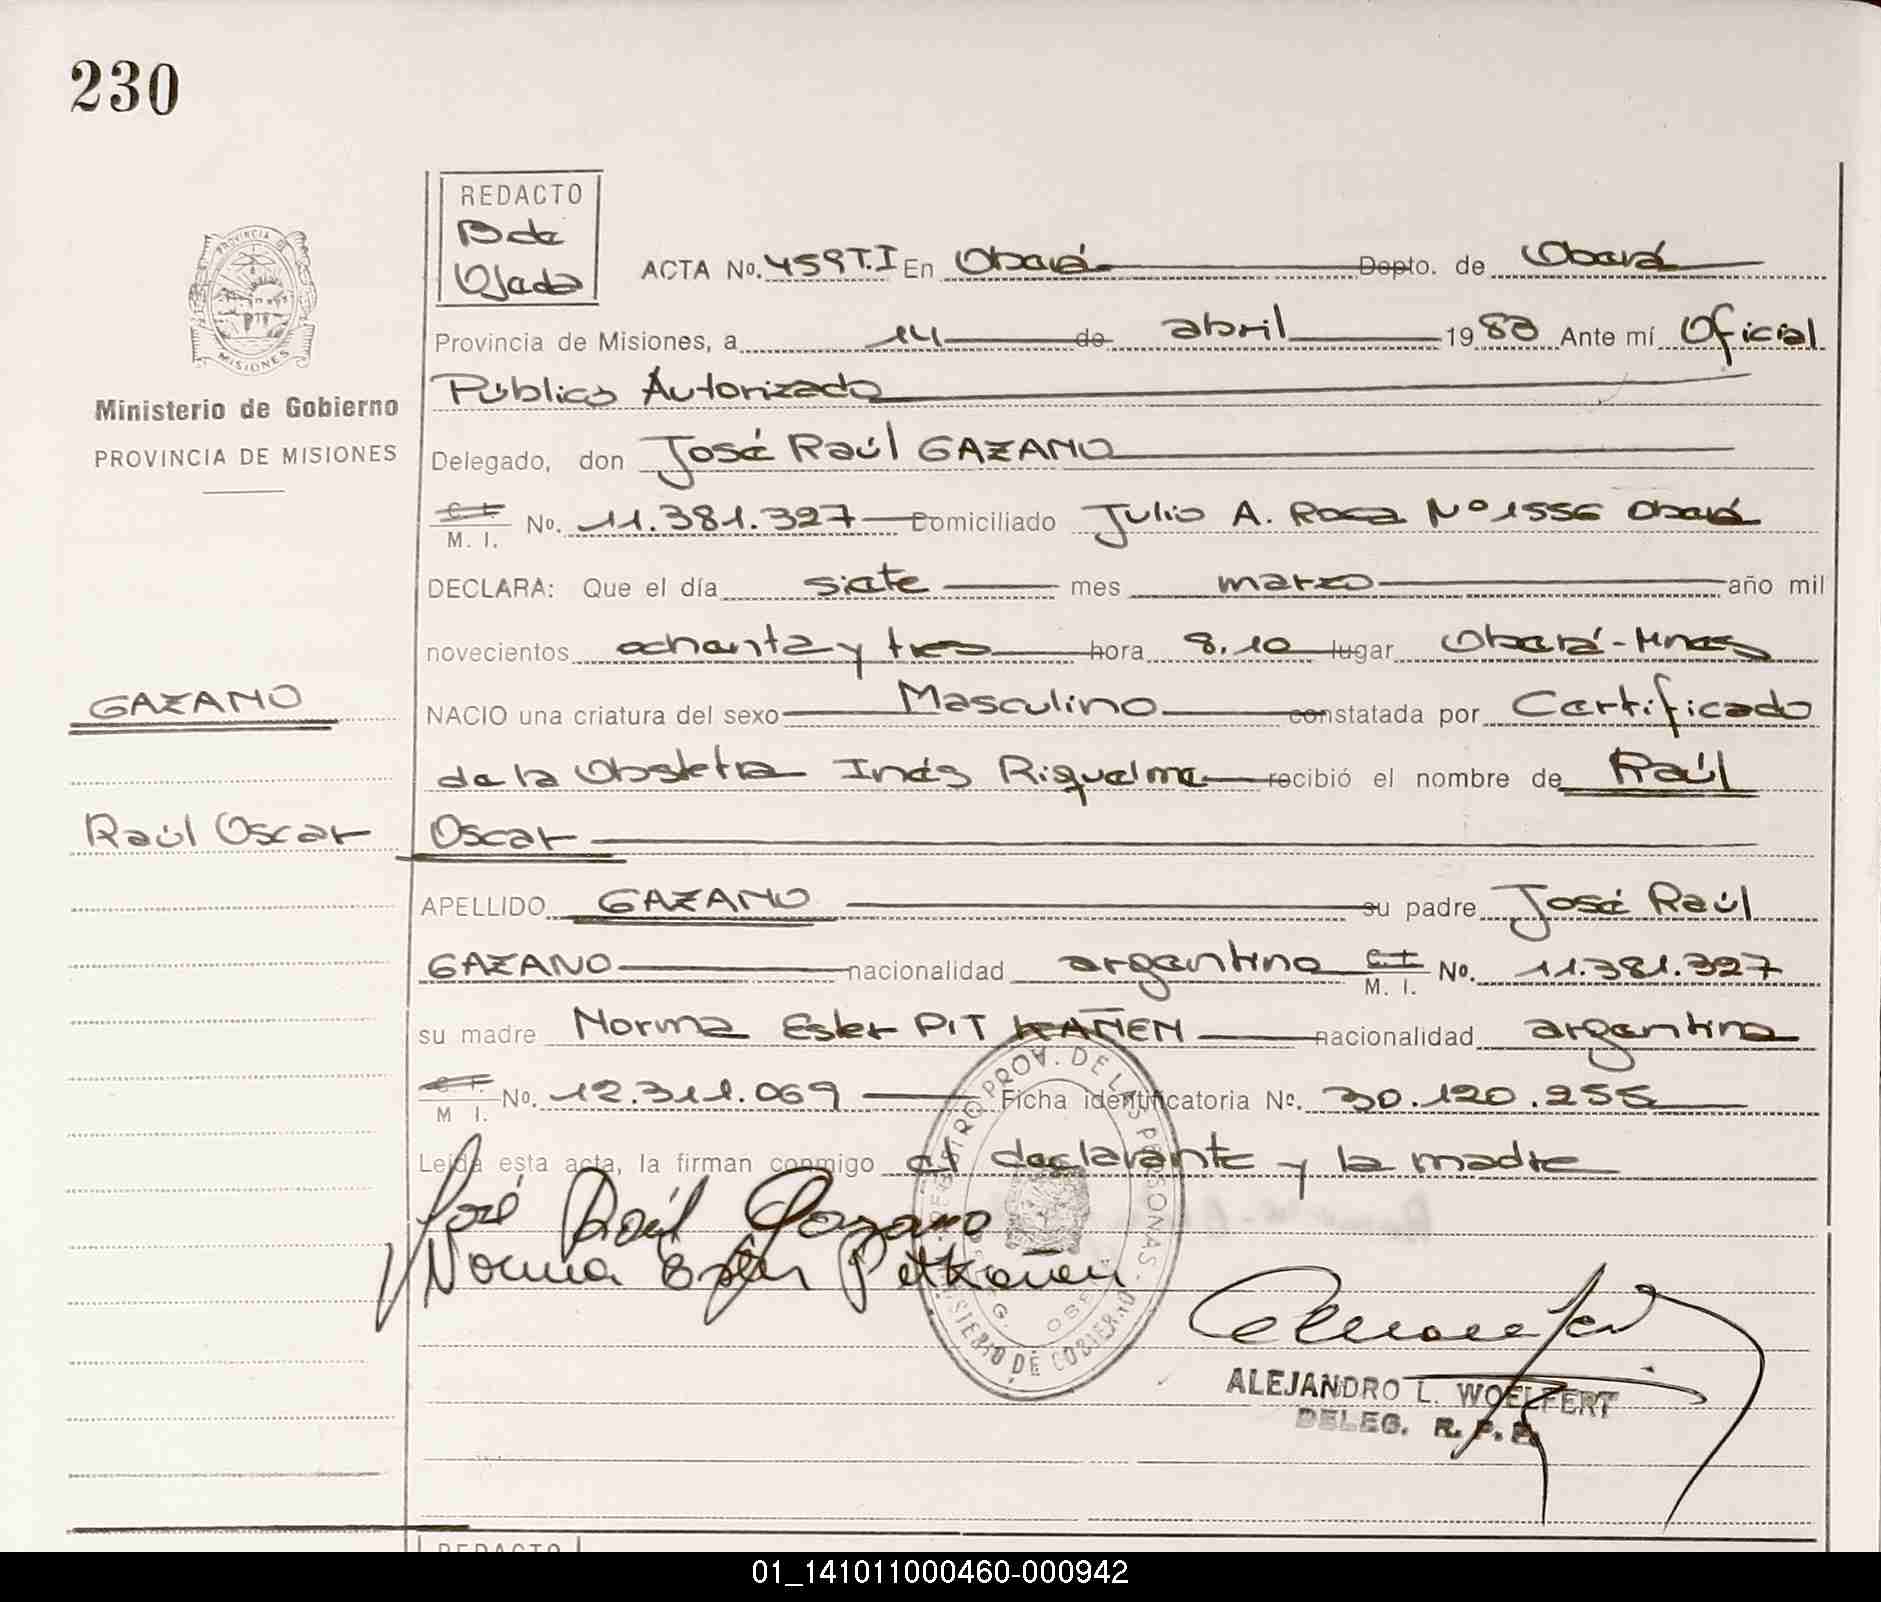 230
REDACTO
B de
Ojeda
ACTA No. 459 T.I En Oberá Depto. de Oberá
Provincia de Misiones, a 14 de abril 1983 Ante mí Oficial
Público Autorizado
Delegado, don José Raúl GAZANO
C. I. M. I. No. 11.381.327 Domiciliado Julio A. Roca Nº 1556 Oberá
DECLARA: Que el día siete mes marzo año mil
novecientos ochenta y tres hora 8.10 lugar Oberá-Mnes
NACIO una criatura del sexo Masculino constatada por Certificado
de la Obstetra Inés Riquelme recibió el nombre de Raúl
Oscar
APELLIDO GAZANO su padre José Raúl
GAZANO nacionalidad argentino C. I. M. I. No. 11.381.327
su madre Norma Ester PIT KAÑEN nacionalidad argentina
C. I. M I. No. 12.311.069 Ficha identificatoria No. 30.120.255
Leida esta acta, la firman conmigo el declarante y la madre
José Raúl Gazano
Norma Ester Pitkañen
PROVINCIA DE
MISIONES
Ministerio de Gobierno
PROVINCIA DE MISIONES
GAZANO
Raúl Oscar
REGISTRO PROV. DE LAS PERSONAS
MINISTERIO DE GOBIERNO
OBERA
ALEJANDRO L. WOELFERT
DELEG. R. P. P.
REDACTO
01_141011000460-000942